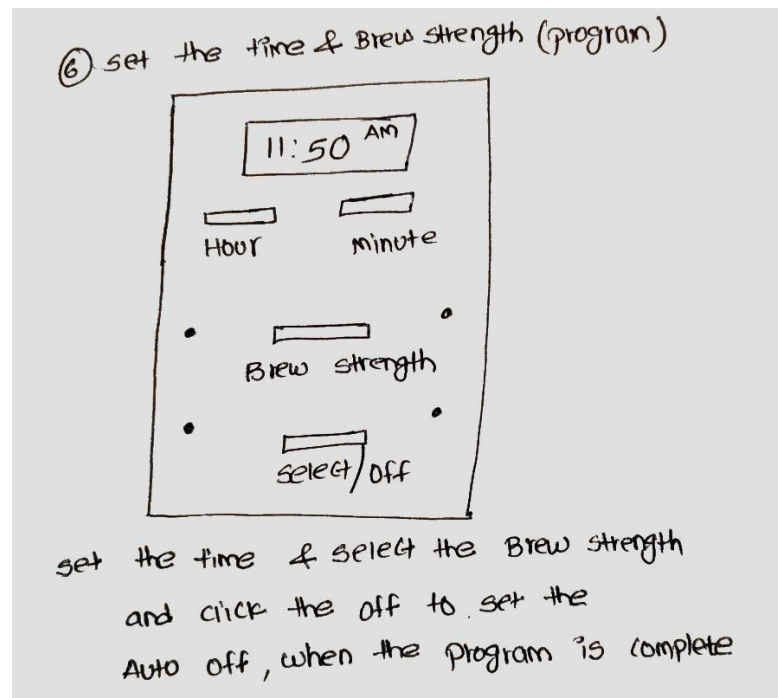 ⑥ set the time & Brew strength (program)
11:50 AM
Hour minute
Brew strength
select/off
set the time & select the Brew strength
and click the off to set the
Auto off, when the program is complete